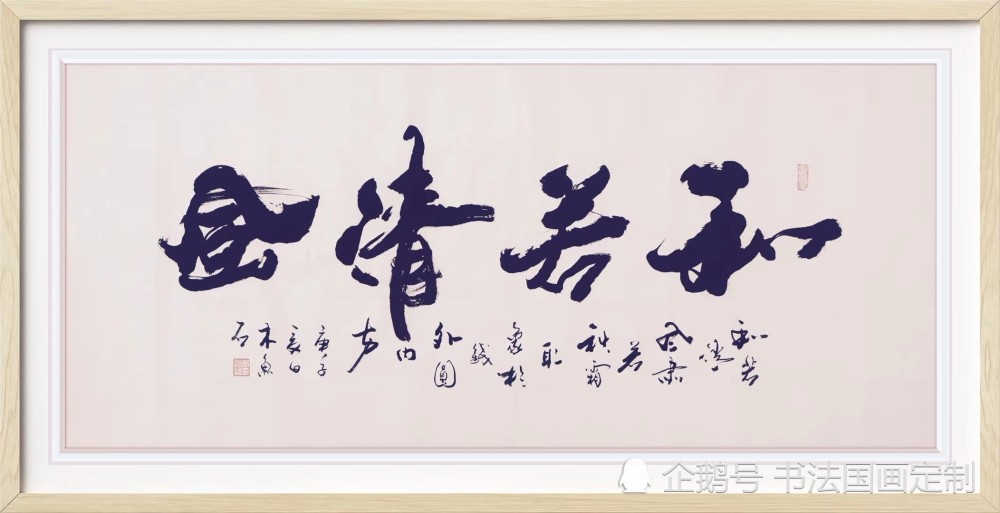 和若清風
和若
清
風肅
若
秋霜
取
象於
錢
外圓
内
方
庚子
夏日
木魚
石
企鹅号 书法国画定制